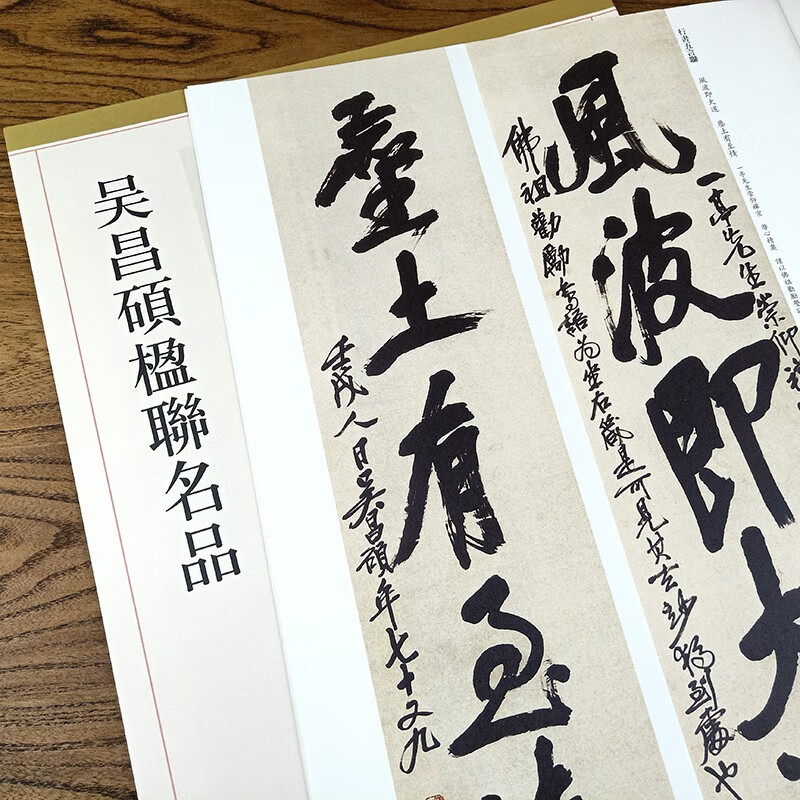 吴昌碩楹聯名品
行書五言聯
風波即大道 塵土有至情 一亭先生崇仰禪宗 潛心精奧 謹以佛祖勸勵
一亭先生崇仰禪
風波即大
佛祖勸勵常語为坐右箴是可見其玄妙獨到處也
塵土有至情
壬戌人日吳昌碩年七十又九